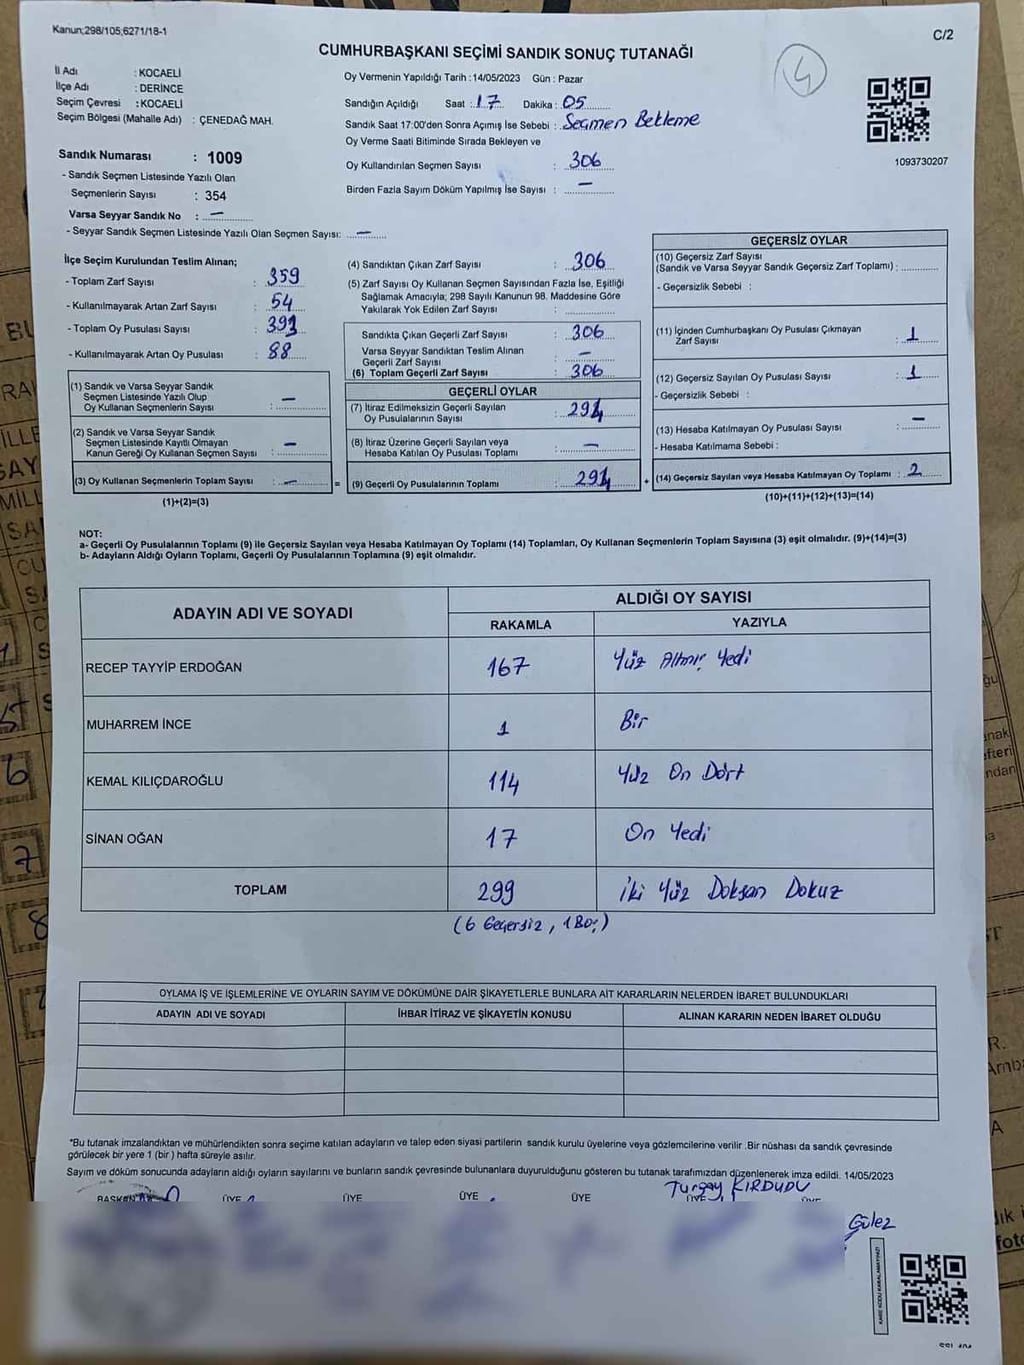 Kanun;298/105;6271/18-1
C/2
CUMHURBAŞKANI SEÇİMİ SANDIK SONUÇ TUTANAĞI
4
İl Adı : KOCAELİ
İlçe Adı : DERİNCE
Seçim Çevresi : KOCAELİ
Seçim Bölgesi (Mahalle Adı) : ÇENEDAĞ MAH.
Oy Vermenin Yapıldığı Tarih : 14/05/2023 Gün : Pazar
Sandığın Açıldığı Saat : 17 Dakika : 05
Sandık Saat 17:00'den Sonra Açımış İse Sebebi : Seçmen Bekleme
Oy Verme Saati Bitiminde Sırada Bekleyen ve
Oy Kullandırılan Seçmen Sayısı : 306
Birden Fazla Sayım Döküm Yapılmış İse Sayısı : —
1093730207
Sandık Numarası : 1009
- Sandık Seçmen Listesinde Yazılı Olan
Seçmenlerin Sayısı : 354
Varsa Seyyar Sandık No : —
- Seyyar Sandık Seçmen Listesinde Yazılı Olan Seçmen Sayısı: —
İlçe Seçim Kurulundan Teslim Alınan;
- Toplam Zarf Sayısı : 359
- Kullanılmayarak Artan Zarf Sayısı : 54
- Toplam Oy Pusulası Sayısı :
- Kullanılmayarak Artan Oy Pusulası : 88
(1) Sandık ve Varsa Seyyar Sandık
Seçmen Listesinde Yazılı Olup
Oy Kullanan Seçmenlerin Sayısı : —
(2) Sandık ve Varsa Seyyar Sandık
Seçmen Listesinde Kayıtlı Olmayan
Kanun Gereği Oy Kullanan Seçmen Sayısı : —
(3) Oy Kullanan Seçmenlerin Toplam Sayısı : —
(1)+(2)=(3)
(4) Sandıktan Çıkan Zarf Sayısı : 306
(5) Zarf Sayısı Oy Kullanan Seçmen Sayısından Fazla İse, Eşitliği
Sağlamak Amacıyla; 298 Sayılı Kanunun 98. Maddesine Göre
Yakılarak Yok Edilen Zarf Sayısı :
Sandıkta Çıkan Geçerli Zarf Sayısı : 306
Varsa Seyyar Sandıktan Teslim Alınan
Geçerli Zarf Sayısı : —
(6) Toplam Geçerli Zarf Sayısı : 306
GEÇERLİ OYLAR
(7) İtiraz Edilmeksizin Geçerli Sayılan
Oy Pusulalarının Sayısı :
(8) İtiraz Üzerine Geçerli Sayılan veya
Hesaba Katılan Oy Pusulası Toplamı : —
= (9) Geçerli Oy Pusulalarının Toplamı :
GEÇERSİZ OYLAR
(10) Geçersiz Zarf Sayısı
(Sandık ve Varsa Seyyar Sandık Geçersiz Zarf Toplamı) :
- Geçersizlik Sebebi :
(11) İçinden Cumhurbaşkanı Oy Pusulası Çıkmayan
Zarf Sayısı : 1
(12) Geçersiz Sayılan Oy Pusulası Sayısı : 1
- Geçersizlik Sebebi :
(13) Hesaba Katılmayan Oy Pusulası Sayısı : —
- Hesaba Katılmama Sebebi :
+ (14) Geçersiz Sayılan veya Hesaba Katılmayan Oy Toplamı : 2
(10)+(11)+(12)+(13)=(14)
NOT:
a- Geçerli Oy Pusulalarının Toplamı (9) ile Geçersiz Sayılan veya Hesaba Katılmayan Oy Toplamı (14) Toplamları, Oy Kullanan Seçmenlerin Toplam Sayısına (3) eşit olmalıdır. (9)+(14)=(3)
b- Adayların Aldığı Oyların Toplamı, Geçerli Oy Pusulalarının Toplamına (9) eşit olmalıdır.
ADAYIN ADI VE SOYADI
ALDIĞI OY SAYISI
RAKAMLA YAZIYLA
RECEP TAYYİP ERDOĞAN 167 Yüz Altmış Yedi
MUHARREM İNCE 1 Bir
KEMAL KILIÇDAROĞLU 114 Yüz On Dört
SİNAN OĞAN 17 On Yedi
TOPLAM 299 İki Yüz Doksan Dokuz
(6 Geçersiz, 1 Boş)
OYLAMA İŞ VE İŞLEMLERİNE VE OYLARIN SAYIM VE DÖKÜMÜNE DAİR ŞİKAYETLERLE BUNLARA AİT KARARLARIN NELERDEN İBARET BULUNDUKLARI
ADAYIN ADI VE SOYADI İHBAR İTİRAZ VE ŞİKAYETİN KONUSU ALINAN KARARIN NEDEN İBARET OLDUĞU
*Bu tutanak imzalandıktan ve mühürlendikten sonra seçime katılan adayların ve talep eden siyasi partilerin sandık kurulu üyelerine veya gözlemcilerine verilir .Bir nüshası da sandık çevresinde
görülecek bir yere 1 (bir ) hafta süreyle asılır.
Sayım ve döküm sonucunda adayların aldığı oyların sayılarını ve bunların sandık çevresinde bulunanlara duyurulduğunu gösteren bu tutanak tarafımızdan düzenlenerek imza edildi. 14/05/2023
Turgay KIRDUDU
BAŞKAN ÜYE ÜYE ÜYE ÜYE ÜYE ÜYE
Gülez
KARE KODU KARALAMAYINIZ!